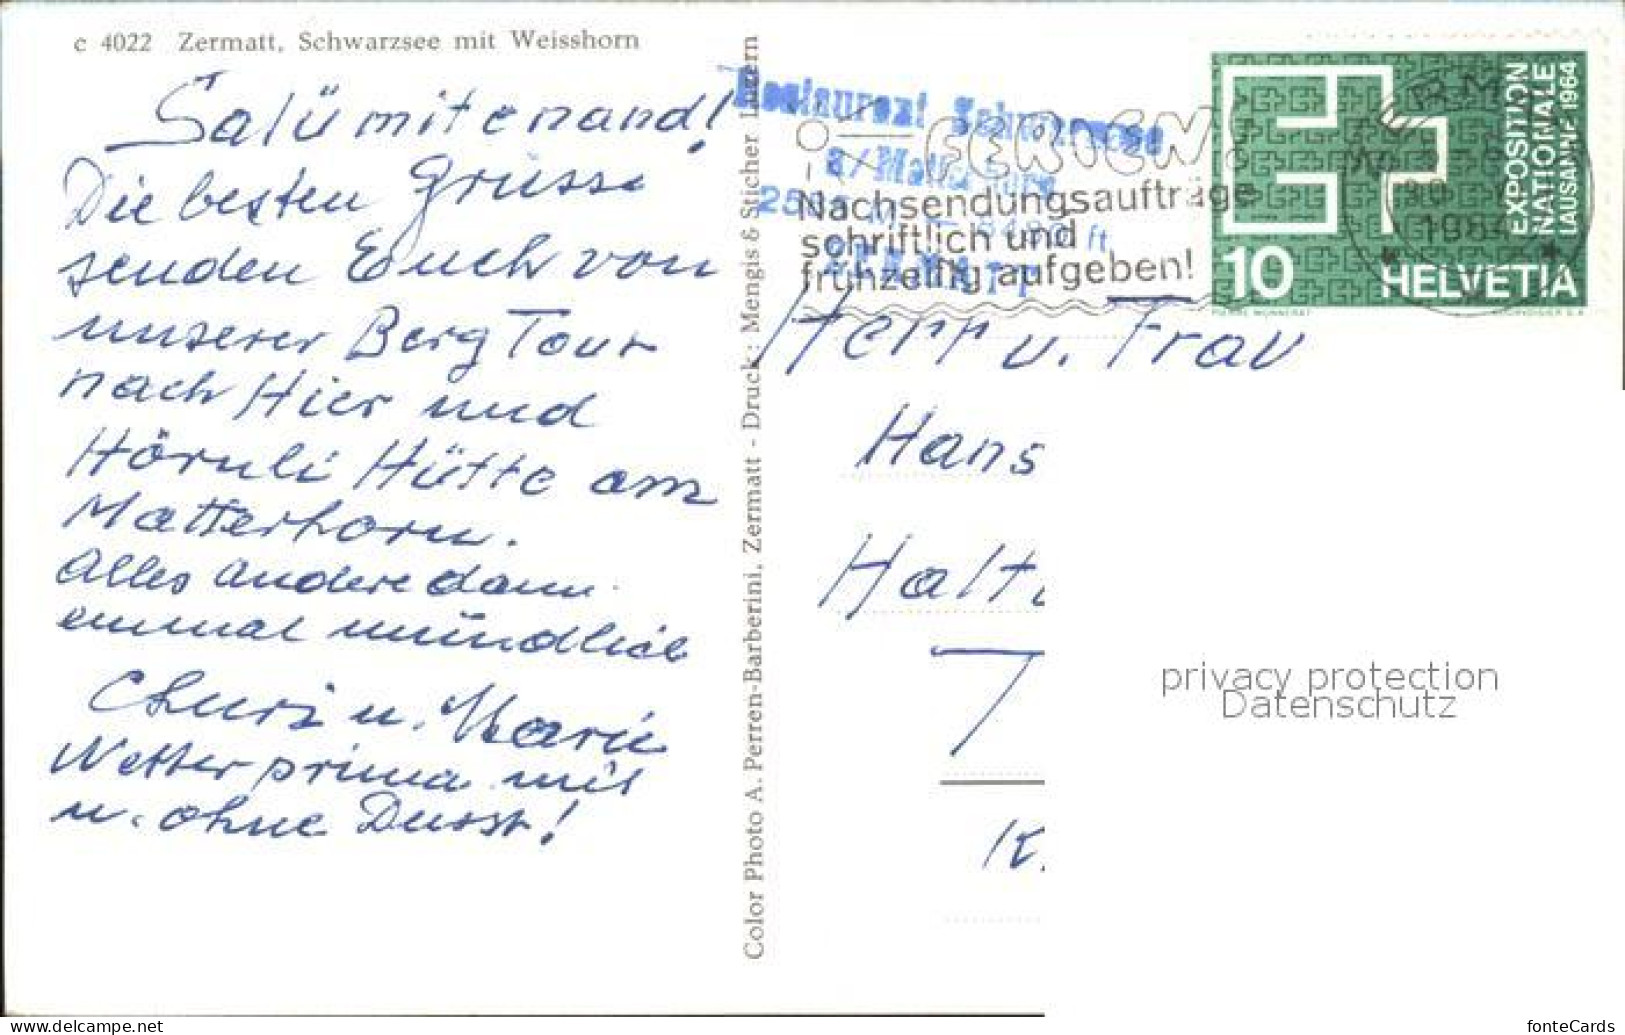 c 4022 Zermatt, Schwarzsee mit Weisshorn
Salü mitenand!
Die besten Grüsse
senden Euch von
unserer Berg Tour
nach Hier und
Hörnli Hütte am
Matterhorn.
Alles andere dann
einmal mündlich
Churi u. Marie
Wetter prima mit
u. ohne Durst!
Color Photo A. Perren-Barberini, Zermatt - Druck: Mengis & Sticher Luzern
Restaurant Schwarzsee
a/Matterhorn
ft
ZERMATT
FERIEN!
Nachsendungsaufträge
schriftlich und
frühzeitig aufgeben!
ZERMATT
1964
EXPOSITION
NATIONALE
LAUSANNE 1964
10 HELVETIA
PIERRE MONNERAT COURVOISIER S.A.
Herr u. Frau
Hans
Halt
T
K.
privacy protection
Datenschutz
delcampe.net
fonteCards